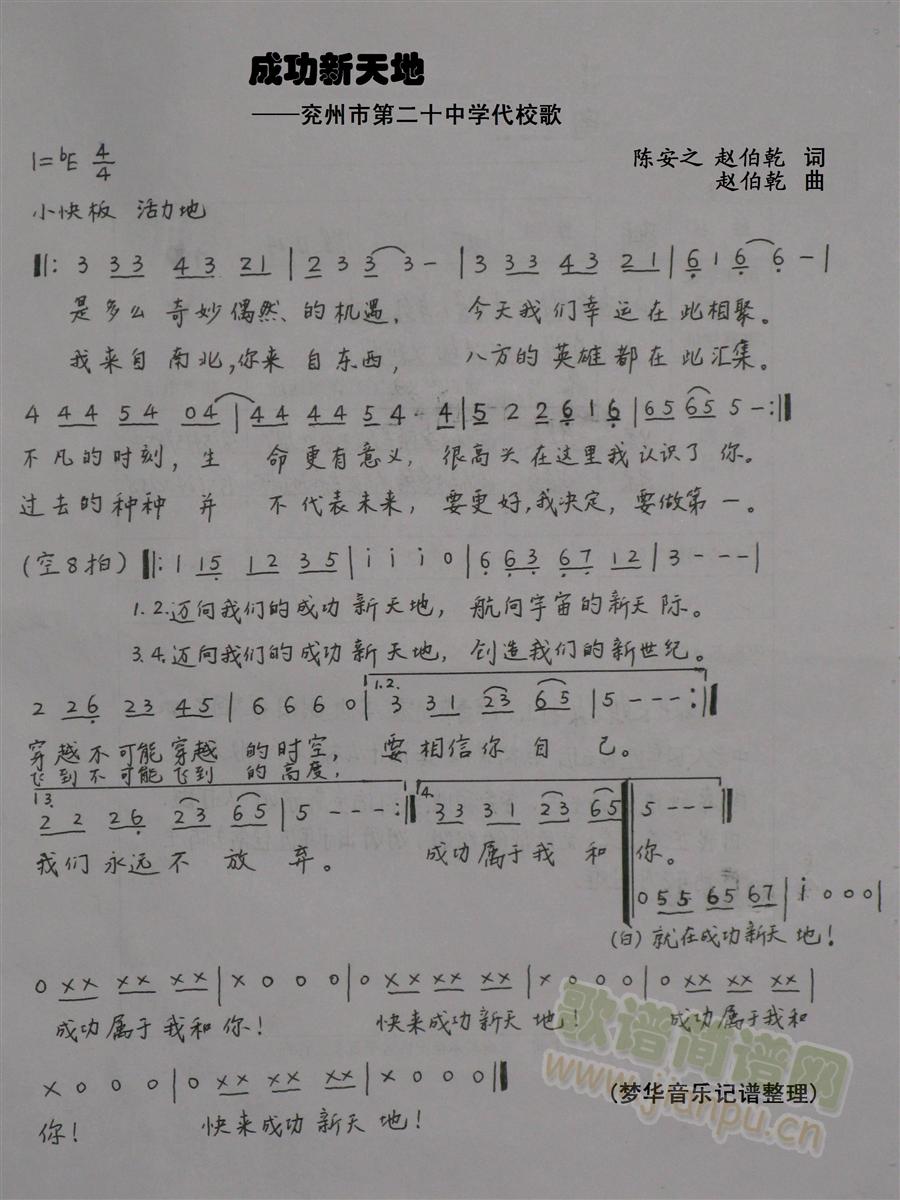 成功新天地
——兖州市第二十中学代校歌
1=bE 4/4
陈安之 赵伯乾 词
赵伯乾 曲
小快板 活力地
‖: 3 3 3 4 3 2 1 | 2 3 3 3 - | 3 3 3 4 3 2 1 | 6 1 6 6 - |
是多么 奇妙偶然、的机遇, 今天我们幸运在此相聚。
我来自 南北,你来 自东西, 八方的英雄都在此汇集。
4 4 4 5 4 0 4 | 4 4 4 4 5 4 · 4 | 5 2 2 6 1 6 | 6 5 6 5 5 - :‖
不凡的时刻, 生 命更有意义, 很高兴在这里我认识了你。
过去的种种 并 不代表未来, 要更好,我决定, 要做第一。
(空8拍) ‖: 1 1 5 1 2 3 5 | i i i 0 | 6 6 3 6 7 1 2 | 3 - - - |
1.2.迈向我们的成功新天地, 航向宇宙的新天际。
3.4.迈向我们的成功新天地, 创造我们的新世纪。
2 2 6 2 3 4 5 | 6 6 6 0 | 1.2. 3 3 1 2 3 6 5 | 5 - - - :‖
穿越不可能穿越 的时空, 要相信你自己。
飞到不可能飞到 的高度,
13. 2 2 2 6 2 3 6 5 | 5 - - - :‖ 4. 3 3 3 1 2 3 6 5 ‖ 5 - - - ‖
我们永远不放弃。 成功属于我和你。
0 5 5 6 5 6 7 | i 0 0 0 |
(白) 就在成功新天地!
0 x x x x x x | x 0 0 0 | 0 x x x x x x | x 0 0 0 | 0 x x x x x x |
成功属于我和你! 快来成功新天地! 成功属于我和
x 0 0 0 | 0 x x x x x x | x 0 0 0 ‖
你! 快来成功新天地!
(梦华音乐记谱整理)
歌谱简谱网
www.jianpu.cn